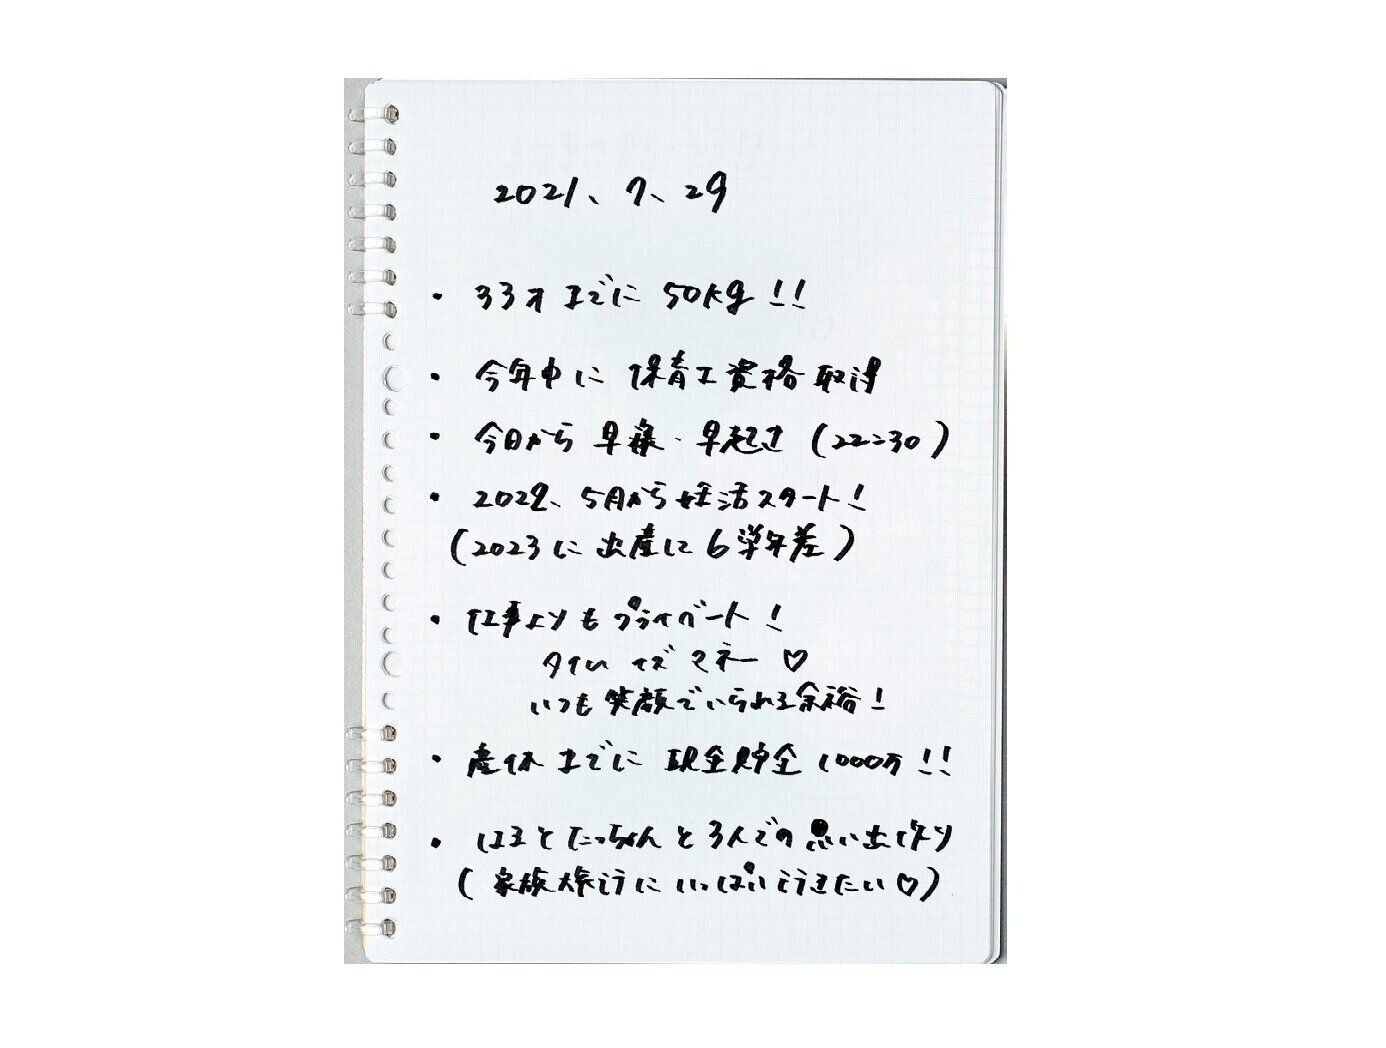 2021、7、29
・33才までに 50kg!!
・今年中に 保育士資格取得
・今日から 早寝・早起き (22:30)
・2022、5月から妊活スタート!
(2023に出産に6学年差)
・仕事よりもプライベート!
タイム イズ マネー♡
いつも笑顔でいられる余裕!
・産休までに 現金貯金1000万!!
・はると たっちゃんと3人での思い出作り
(家族旅行にいっぱい行きたい♡)